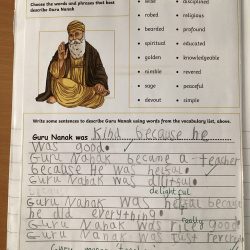 Choose the words and phrases that best
describe Guru Nanak
wise
disciplined
robed
religious
bearded
profound
spiritual
educated
golden
knowledgeable
nimble
revered
sage
peaceful
devout
simple
Write some sentences to describe Guru Nanak using words from the vocabulary list, above.
Guru Nanak was kind because he
was good.
Guru Nanak became a teacher
because He was helful
Guru Nanak was
delightful
Guru Nanak was helful because
he did everything
really
Guru Nanak was good
Guru Nanak was
Guru means